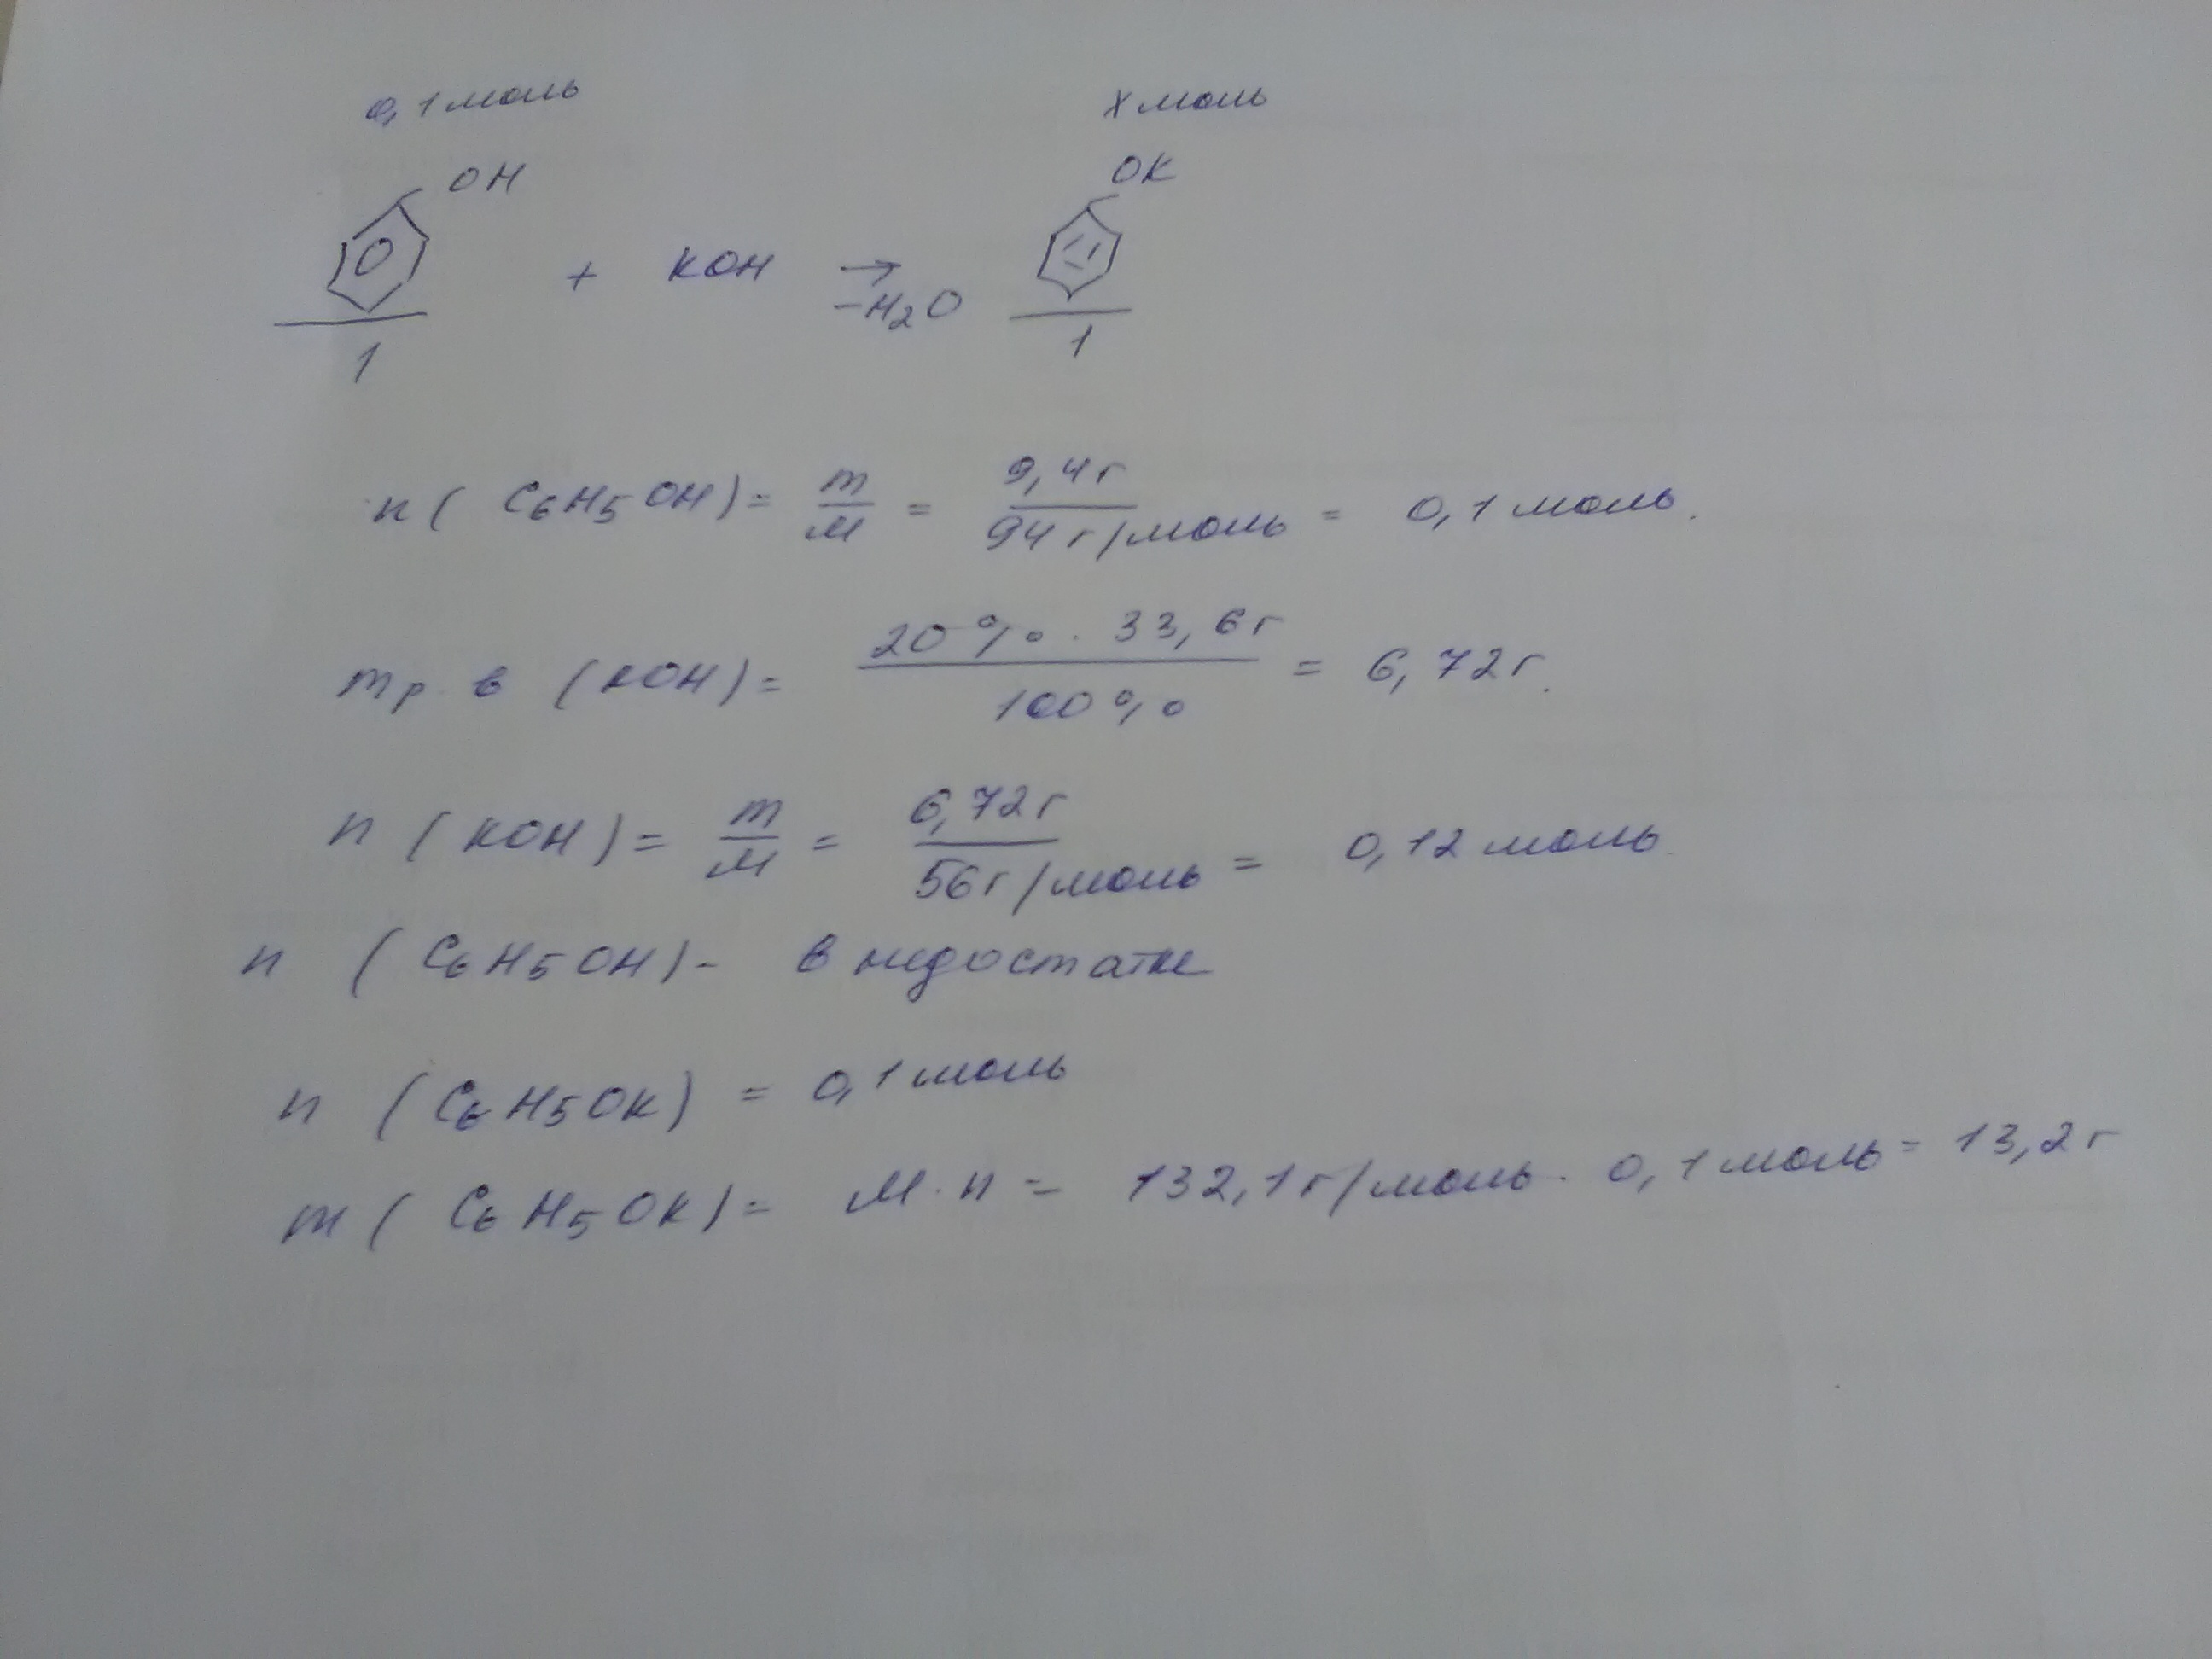 0,1 моль X моль
OH OK
+ KOH → 
-H₂O
1 1
n ( C₆H₅OH) = m/M = 9,4 г / 94 г/моль = 0,1 моль.
m р. в (KOH) = 20 % · 33,6 г / 100 % = 6,72 г.
n ( KOH ) = m/M = 6,72 г / 56 г/моль = 0,12 моль.
n ( C₆H₅OH) - в недостатке
n ( C₆H₅OK) = 0,1 моль
m ( C₆H₅OK) = M · n = 132,1 г/моль · 0,1 моль = 13,2 г